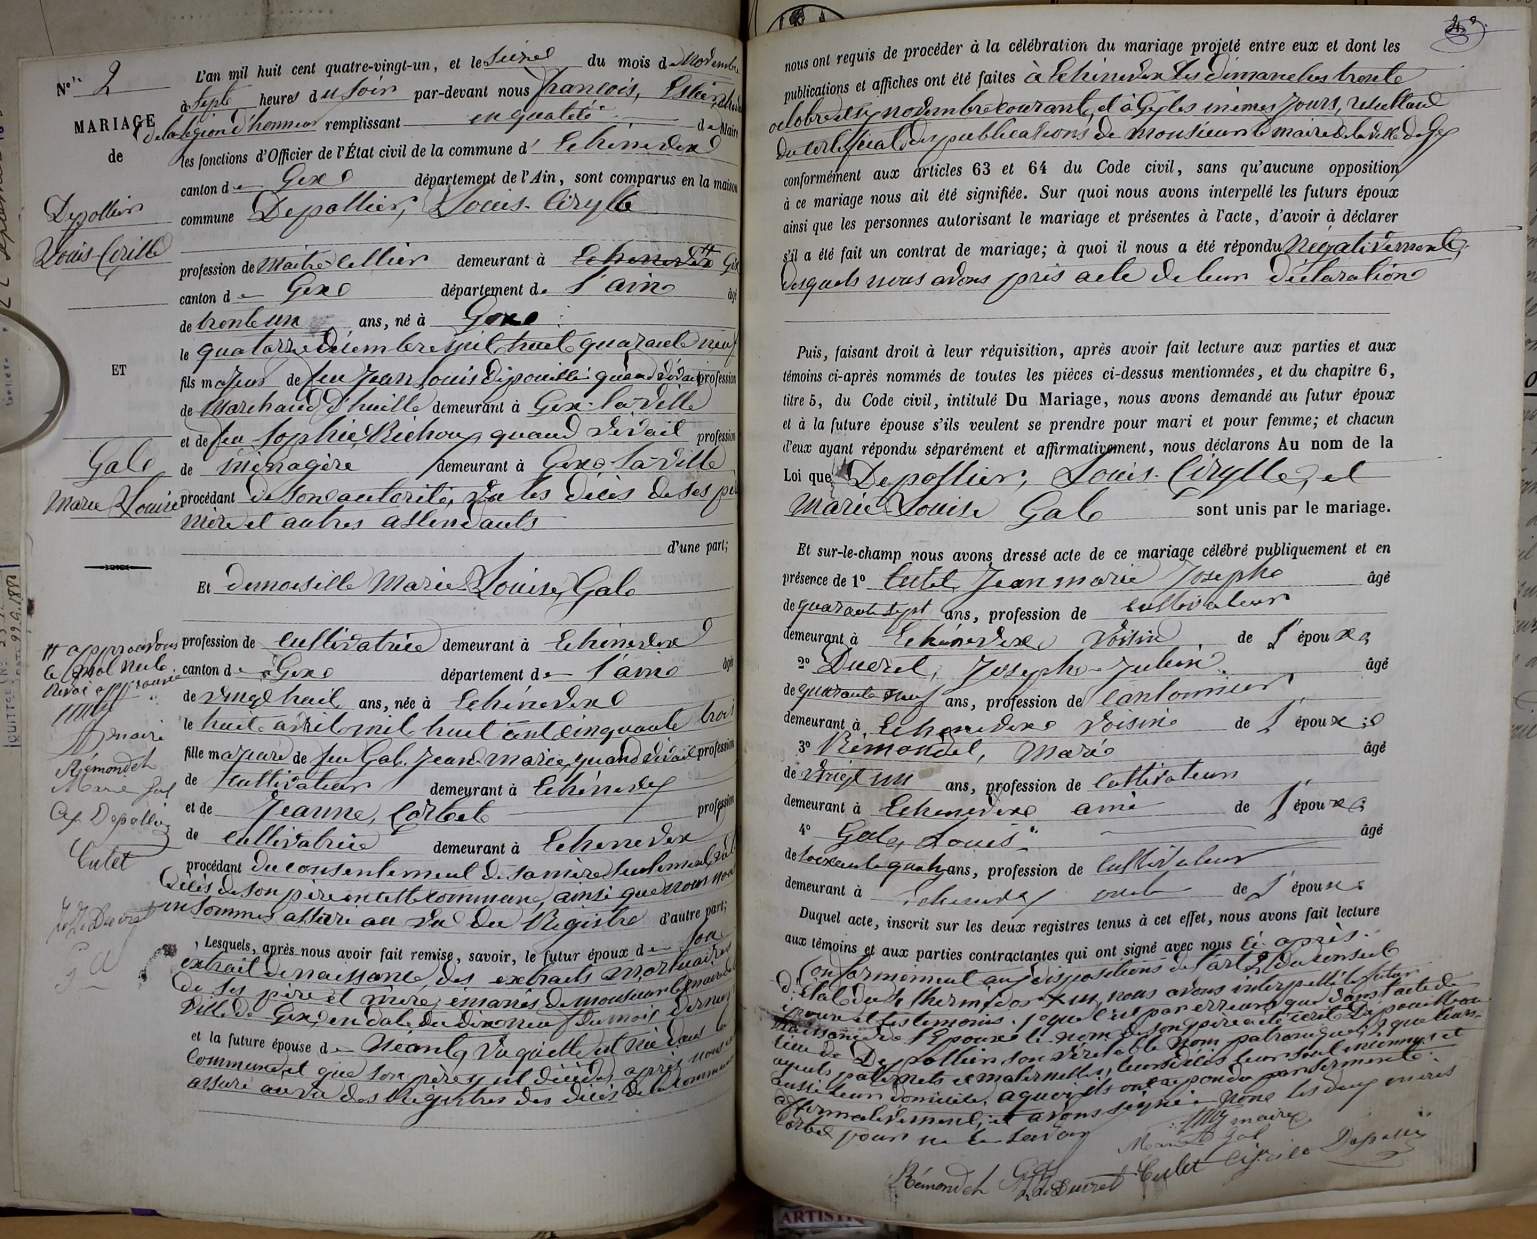 N° 2
MARIAGE
de
Depollier
Louis Cirille
ET
Gal
Marie Louise
approuvons
Rémondet
Marie Gal
Cy. Depollier
Cutet
J. J. Ducret
L'an mil huit cent quatre-vingt-un, et le seize du mois de Novembre
à sept heures du soir par-devant nous françois,
de la légion d'honneur remplissant en qualité de Maire
les fonctions d'Officier de l'État civil de la commune d' Echenevex
canton de Gex département de l'Ain, sont comparus en la maison
commune Depollier, Louis-Cirylle
profession de demeurant à Echenevex Gex
canton de Gex département de l'ain âgé
de trente un ans, né à Gex
le quatorze décembre mil huit quarante neuf
fils majeur de feu Jean Louis quand vivait profession
de Marchand d'huille demeurant à Gex-la-ville
et de feu Sophie quand vivait profession
de ménagère demeurant à Gex-la-ville
procédant de son autorité, vu les décès de ses père
mère et autres ascendants
d'une part;
Et demoiselle Marie-Louise, Gal
profession de cultivatrice demeurant à Echenevex
canton de Gex département de l'ain âgée
de vingt huit ans, née à Echenevex
le huit avril mil huit cent cinquante trois
fille majeure de feu Gal, Jean-Marie, quand vivait profession
de cultivateur demeurant à Echenevex
et de Jeanne, Corbet profession
de cultivatrice demeurant à Echenevex
procédant du consentement de sa mère seulement, vu le
décès de son père en cette commune, ainsi que nous nous
en sommes assuré au vu du Registre d'autre part;
Lesquels, après nous avoir fait remise, savoir, le futur époux de son
extrait de naissance, des extraits mortuaires
de ses père et mère, émanés de monsieur le maire de la
ville de Gex, en date du dix neuf du mois dernier
et la future épouse de Néant, vu qu'elle est née dans la
commune, et que son père y est décédé, après nous en
assuré au vu des Registres des décès de la commune
nous ont requis de procéder à la célébration du mariage projeté entre eux et dont les
publications et affiches ont été faites à Echenevex les dimanches trente
octobre et six novembre courant, et à Gex les mêmes jours, résultant
du certificat des publications de monsieur le maire de la ville de Gex
conformément aux articles 63 et 64 du Code civil, sans qu'aucune opposition
à ce mariage nous ait été signifiée. Sur quoi nous avons interpellé les futurs époux
ainsi que les personnes autorisant le mariage et présentes à l'acte, d'avoir à déclarer
s'il a été fait un contrat de mariage; à quoi il nous a été répondu Négativement,
desquels nous avons pris acte de leur déclaration
Puis, faisant droit à leur réquisition, après avoir fait lecture aux parties et aux
témoins ci-après nommés de toutes les pièces ci-dessus mentionnées, et du chapitre 6,
titre 5, du Code civil, intitulé Du Mariage, nous avons demandé au futur époux
et à la future épouse s'ils veulent se prendre pour mari et pour femme; et chacun
d'eux ayant répondu séparément et affirmativement, nous déclarons Au nom de la
Loi que Depollier, Louis-Cirylle, et
Marie-Louise Gal sont unis par le mariage.
Et sur-le-champ nous avons dressé acte de ce mariage célébré publiquement et en
présence de 1° Cutet, Jean marie Joseph âgé
de quarante sept ans, profession de cultivateur
demeurant à Echenevex voisin de l'époux;
2° Ducret, Joseph-Julien âgé
de quarante neuf ans, profession de cantonnier
demeurant à Echenevex voisin de l'époux;
3° Rémondet, Marie âgé
de vingt un ans, profession de cultivateur
demeurant à Echenevex ami de l'époux;
4° Gal, Louis âgé
de soixante quatre ans, profession de cultivateur
demeurant à Echenevex oncle de l'épouse
Duquel acte, inscrit sur les deux registres tenus à cet effet, nous avons fait lecture
aux témoins et aux parties contractantes qui ont signé avec nous ci après.
Conformément aux dispositions de l'art du conseil
d'État du 4 thermidor XIII, nous avons interpellé le futur
époux et les témoins. que c'est par erreur que dans l'acte de
naissance de l'époux le nom de son père a été écrit Dépouille au
lieu de Depollier son véritable nom patronymique, que leurs
ayeuls paternels et maternels, leurs décès leur sont inconnus et
aussi leur domicile. a quoi ils ont répondu par serment
affirmativement, et avons signé, non les deux mères
Corbet pour ne le savoir
maire
Marie Gal
Rémondet Gal J. J. Ducret Cutet Cyrile Depollier